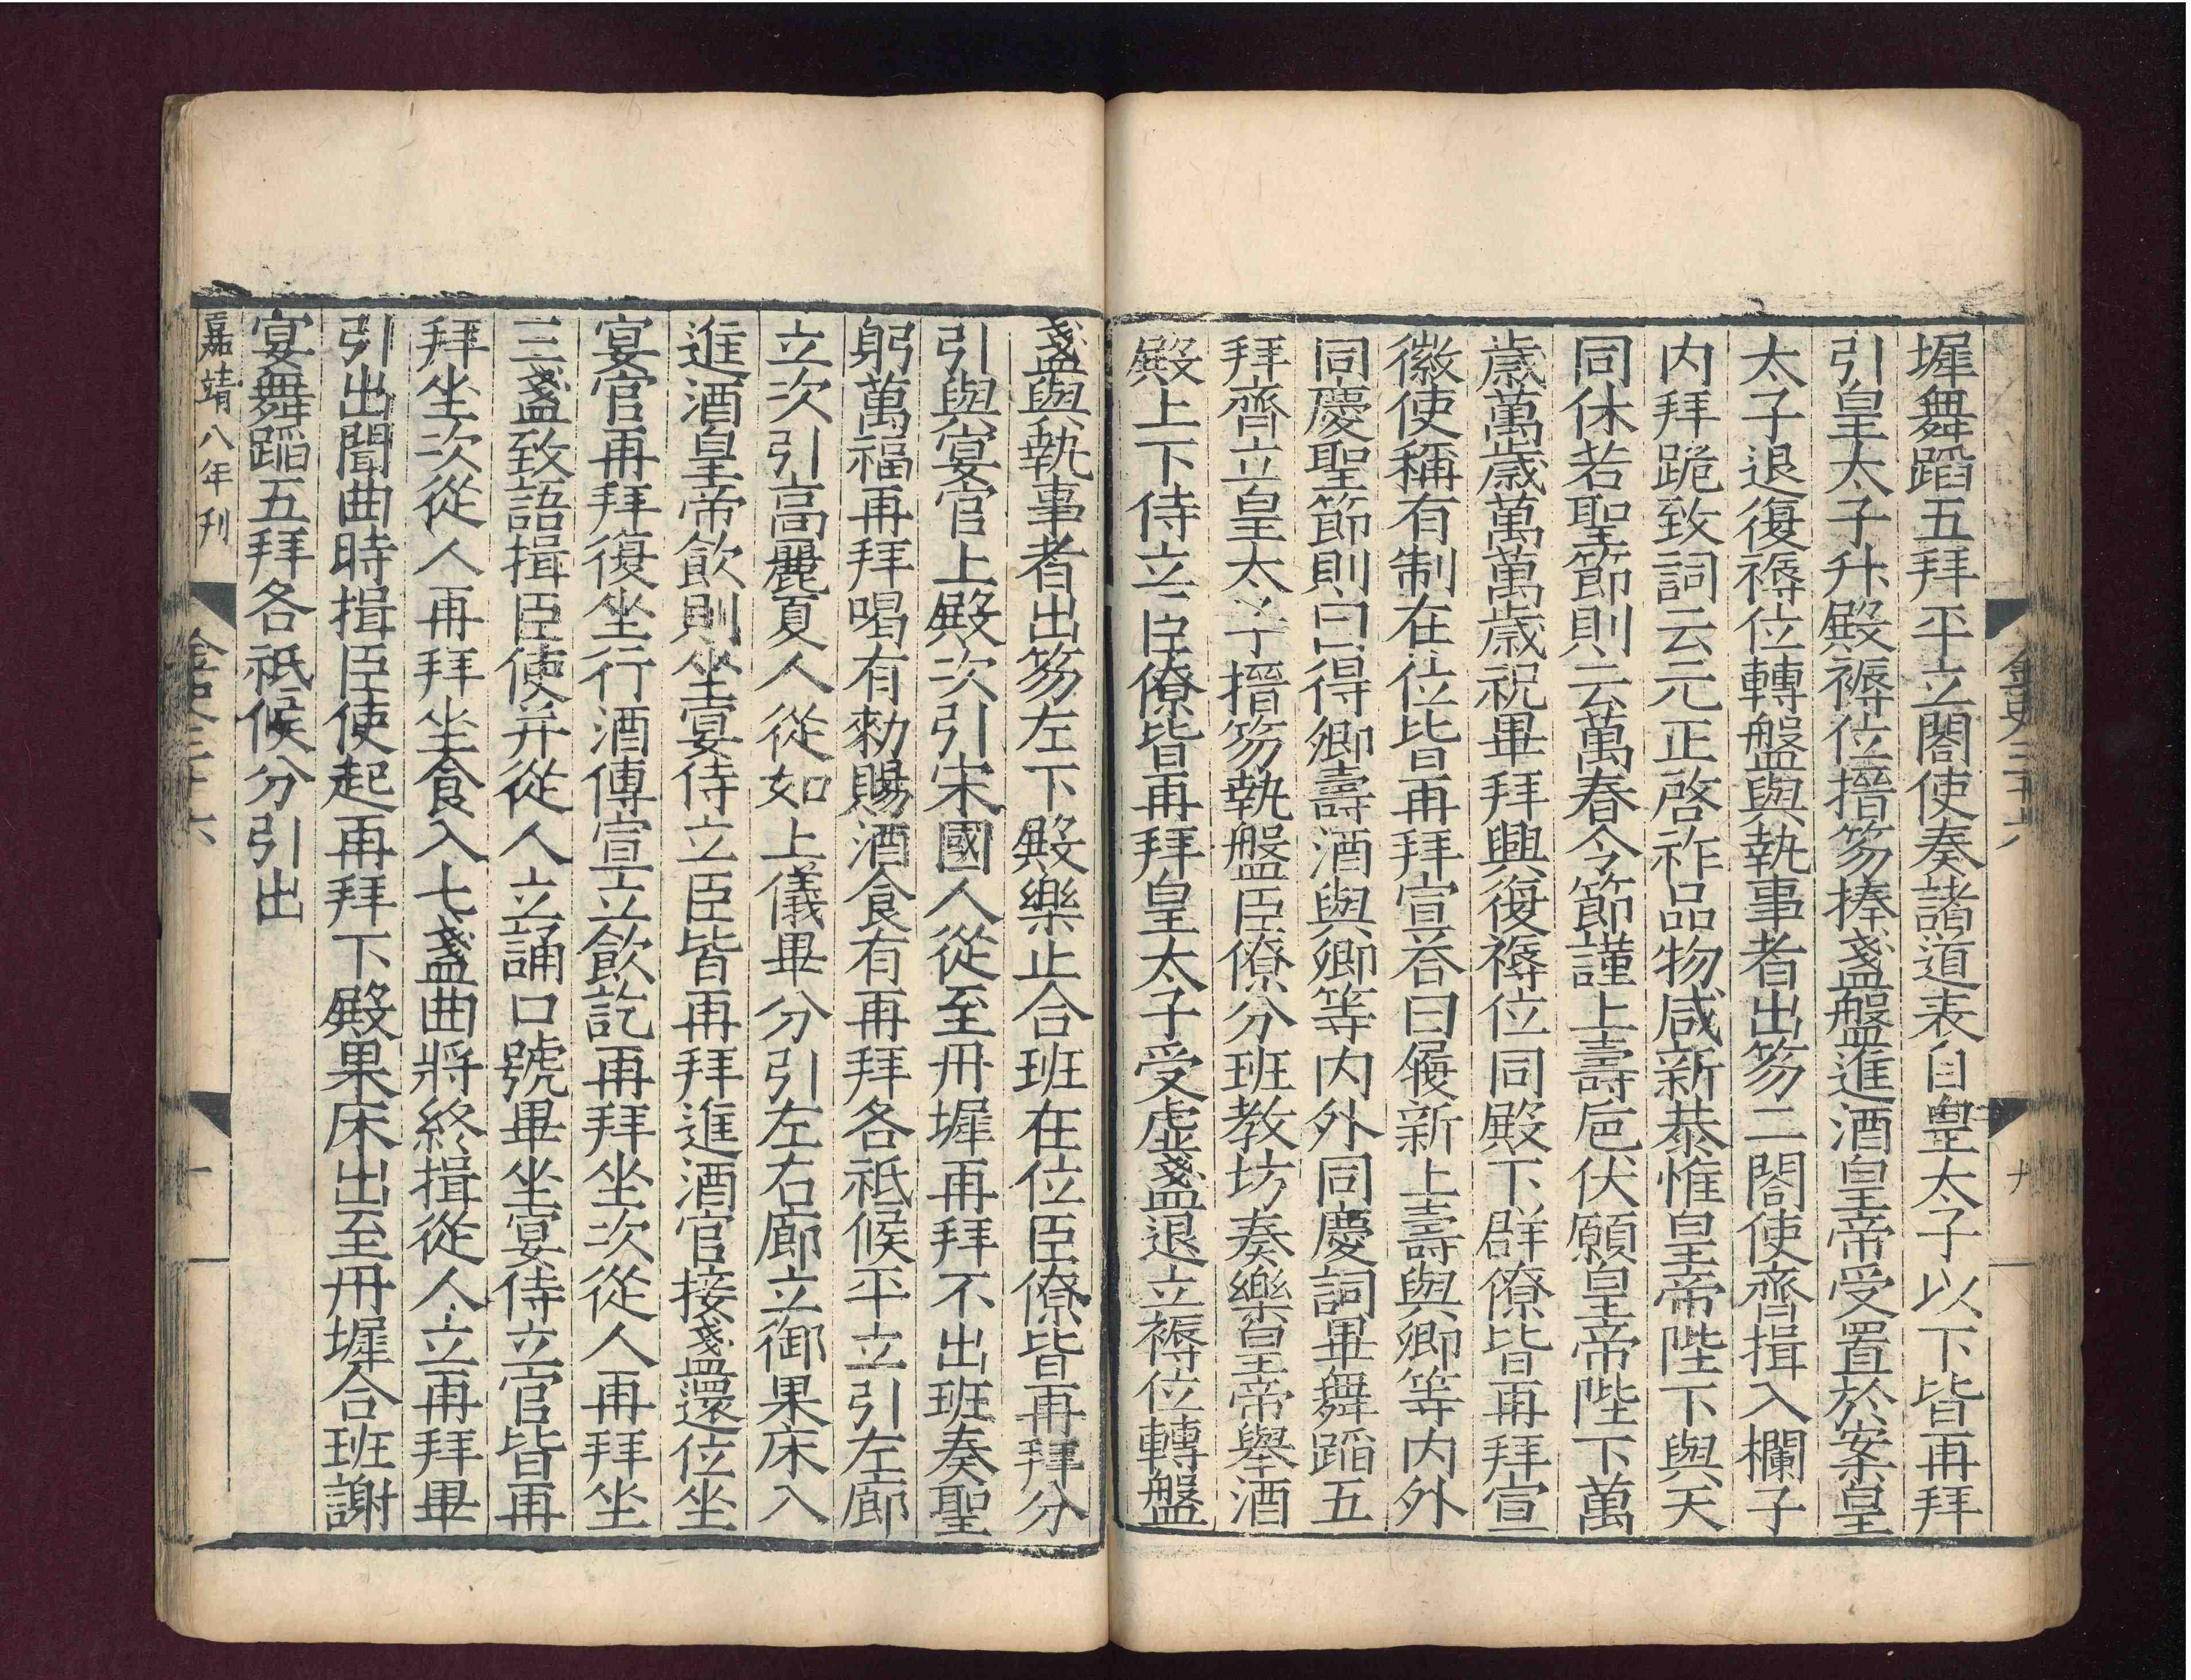 金史三十六
九
墀舞蹈五拜平立閤使奏諸道表目皇太子以下皆再拜
引皇太子升殿褥位搢笏捧盞盤進酒皇帝受置於案皇
太子退復褥位轉盤與執事者出笏二閤使齊揖入欄子
内拜跪致詞云元正啓祚品物咸新恭惟皇帝陛下與天
同休若聖節則云萬春令節謹上壽巵伏願皇帝陛下萬
歲萬歲萬萬歲祝畢拜興復褥位同殿下群僚皆再拜宣
徽使稱有制在位皆再拜宣荅曰履新上壽與卿等内外
同慶聖節則曰得卿壽酒與卿等内外同慶詞畢舞蹈五
拜齊立皇太子搢笏執盤臣僚分班教坊奏樂皇帝舉酒
殿上下侍立臣僚皆再拜皇太子受虛盞退立褥位轉盤
盞與執事者出笏左下殿樂止合班在位臣僚皆再拜分
引與宴官上殿次引宋國人從至丹墀再拜不出班奏聖
躬萬福再拜喝有勑賜酒食有再拜各祗候平立引左廊
立次引高麗夏人從如上儀畢分引左右廊立御果床入
進酒皇帝飲則坐宴侍立臣皆再拜進酒官接盞還位坐
宴官再拜復坐行酒傳宣立飲訖再拜坐次從人再拜坐
三盞致語揖臣使并從人立誦口號畢坐宴侍立官皆再
拜坐次從人再拜坐食入七盞曲將終揖從人立再拜畢
引出聞曲時揖臣使起再拜下殿果床出至丹墀合班謝
宴舞蹈五拜各祗候分引出
嘉靖八年刊
金史三十六
十